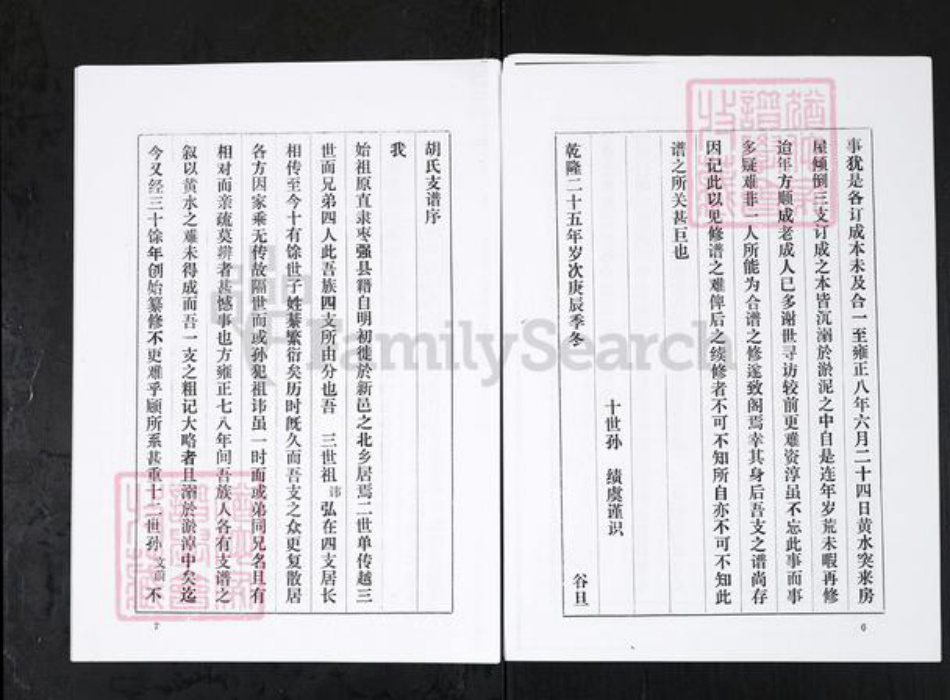 事犹是各订成本未及合一至雍正八年六月二十四日黄水突来房
屋倾倒三支订成之本皆沉溺於淤泥之中自是连年岁荒未暇再修
迨年方顺成老成人已多谢世寻访较前更难资淳虽不忘此事而事
多疑难非一人所能为合谱之修遂致阁焉幸其身后吾支之谱尚存
因记此以见修谱之难俾后之续修者不可不知所自亦不可不知此
谱之所关甚巨也
十世孙 绩虞谨识
乾隆二十五年岁次庚辰季冬 谷旦
6
胡氏支谱序
我
始祖原直隶枣强县籍自明初徙於新邑之北乡居焉二世单传越三
世而兄弟四人此吾族四支所由分也吾 三世祖讳弘在四支居长
相传至今十有馀世子姓蕃繁衍矣历时既久而吾支之众更复散居
各方因家乘无传故隔世而或孙犯祖讳虽一时而或弟同兄名且有
相对而亲疏莫辨者甚憾事也方雍正七八年间吾族人各有支谱之
叙以黄水之难未得成而吾一支之粗记大略者且溺於淤淖中矣迄
今又经三十馀年创始纂修不更难乎顾所系甚重十二世孙文蔚不
7
FamilySearch